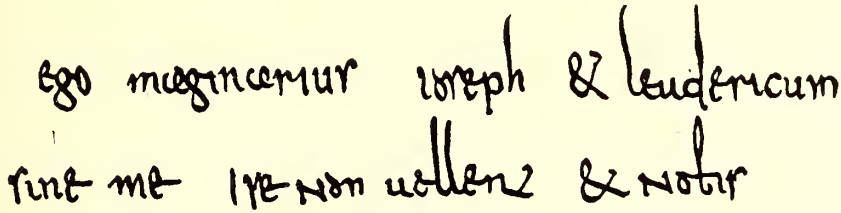 ego maginarius ioseph & leudericum
sine me ire non uellent & nobis